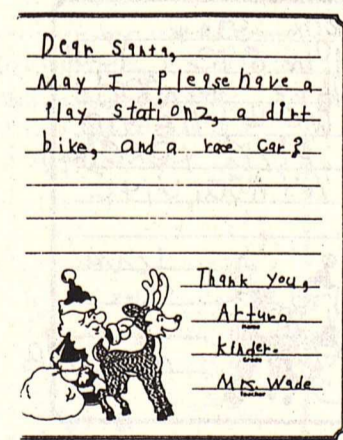 Dear Santa,
May I please have a
Play station2, a dirt
bike, and a race car?
Thank you,
Arturo
Name
Kinder.
Grade
Mrs. Wade
Teacher